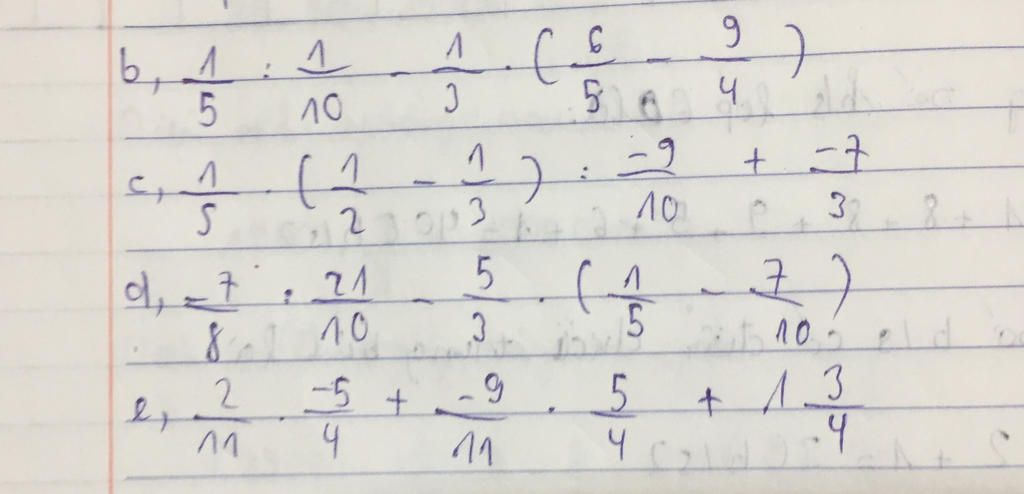 b, 1/5 : 1/10 - 1/3 . (6/5 - 9/4)
c, 1/5 . (1/2 - 1/3) : -9/10 + -7/3
d, -7/8 : 21/10 - 5/3 . (1/5 - 7/10)
e, 2/11 . -5/4 + -9/11 . 5/4 + 1 3/4